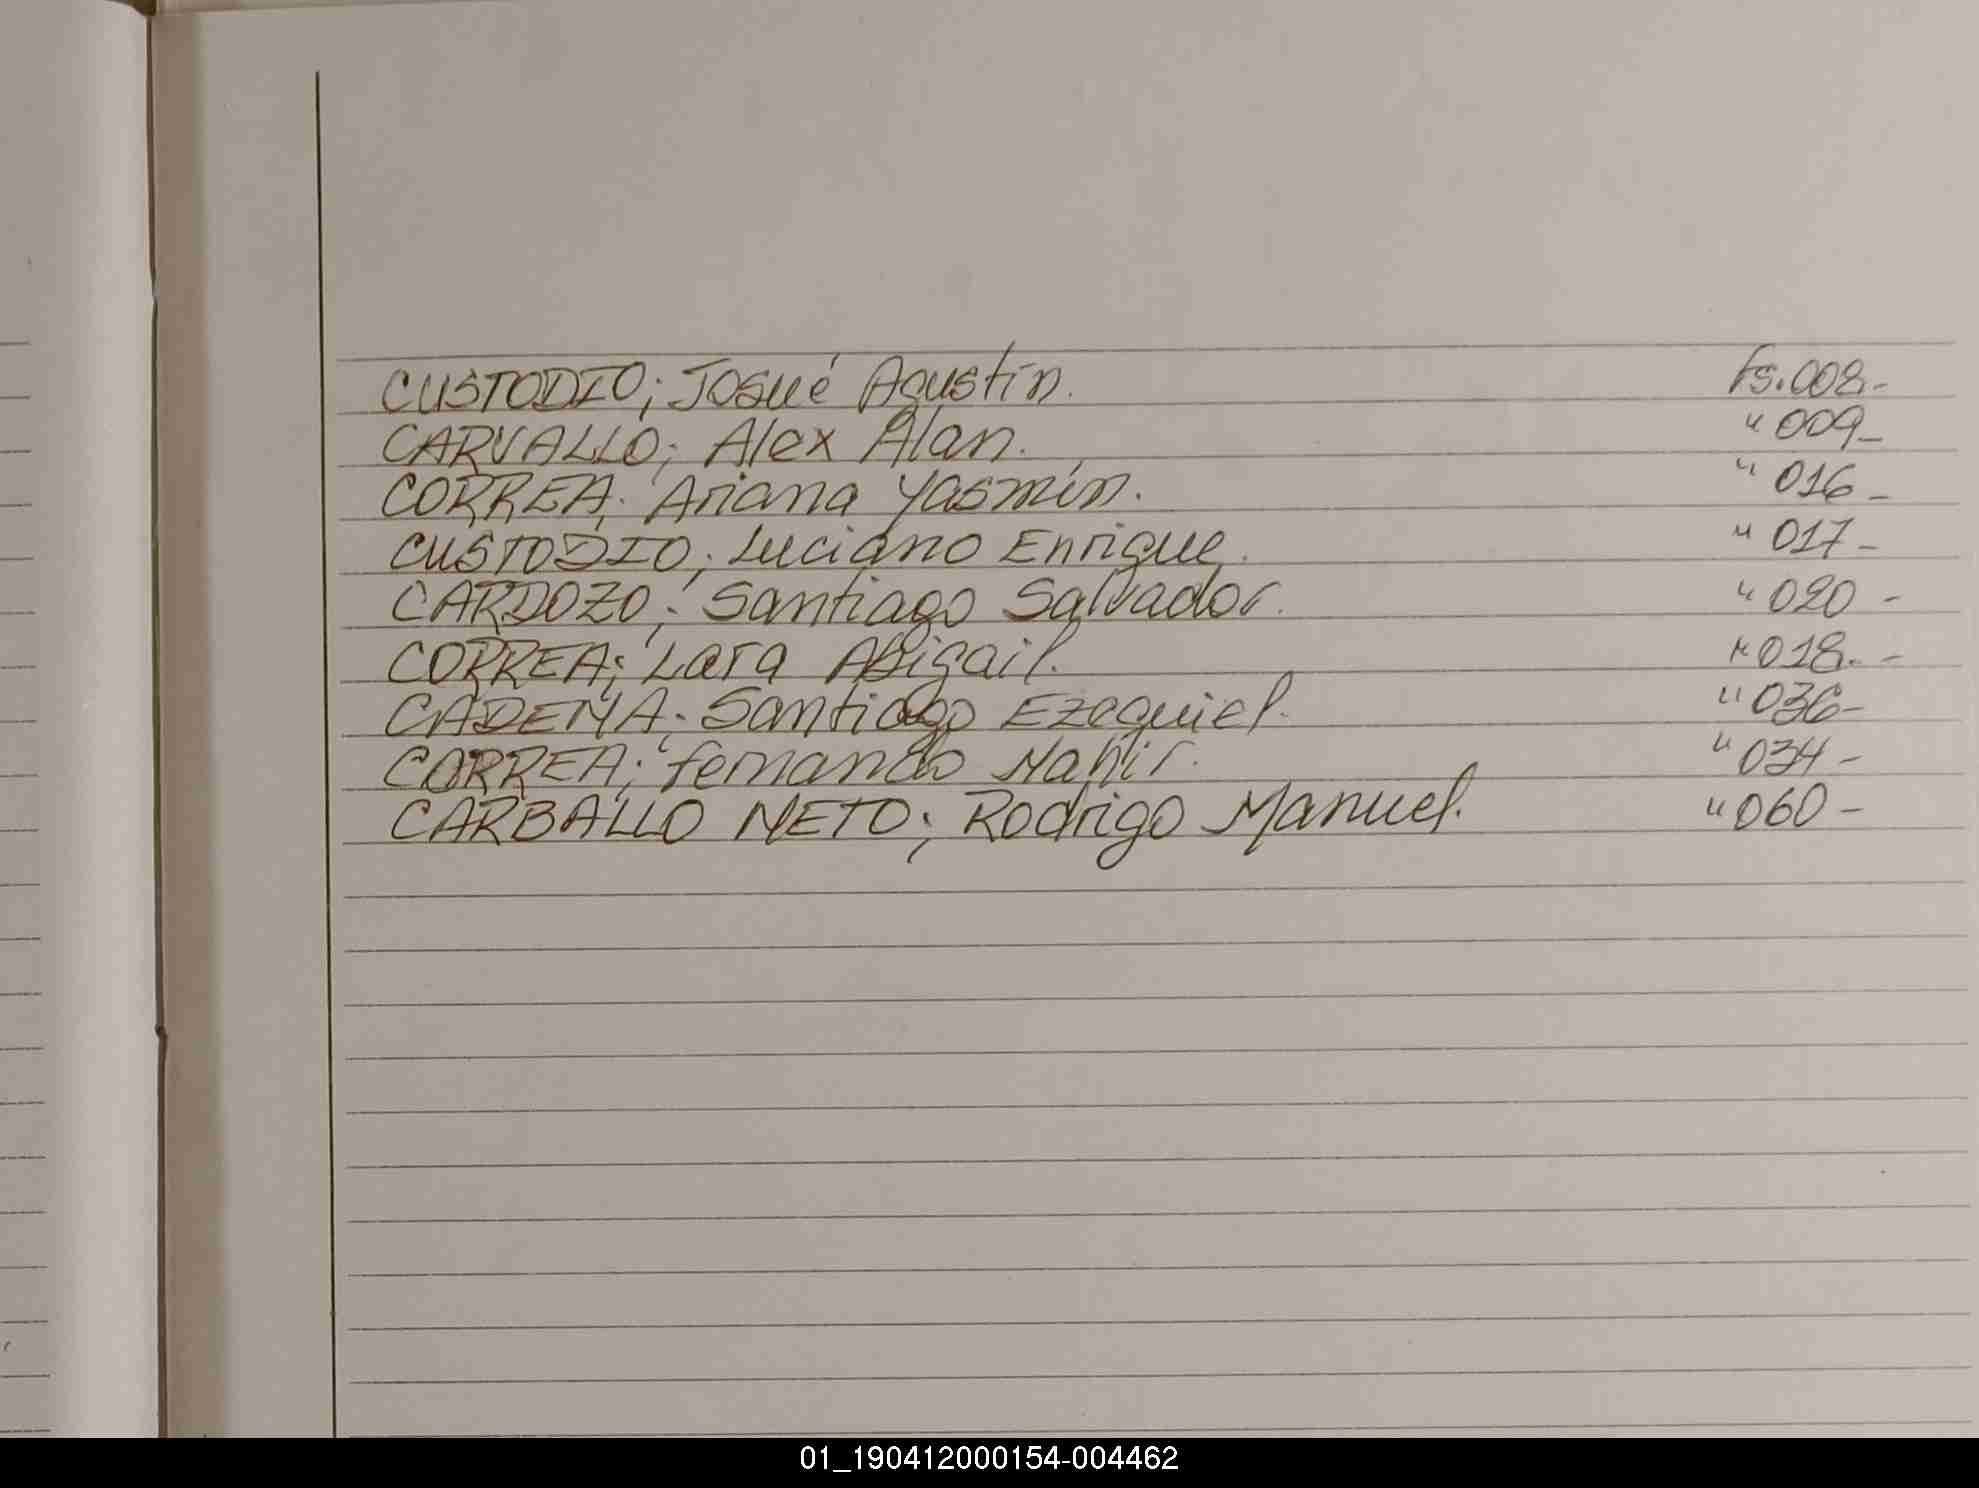 CUSTODIO; Josué Agustín. Fs. 008.-
CARVALLO; Alex Alan. " 009-
CORREA; Ariana Yasmín. " 016-
CUSTODIO; Luciano Enrique. " 017-
CARDOZO; Santiago Salvador. " 020-
CORREA; Lara Abigail. " 018.-
CADEMA; Santiago Ezequiel. " 036-
CORREA; Fernando Nahir. " 034-
CARBALLO NETO; Rodrigo Manuel. " 060-
01_190412000154-004462